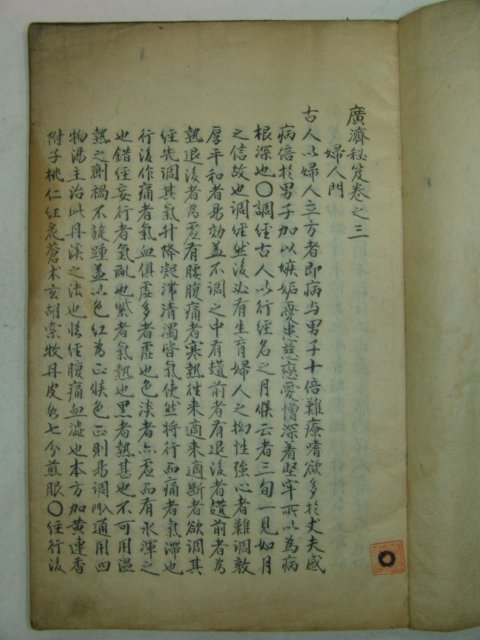 廣濟秘笈卷之三
婦人門
古人以婦人立方者即病与男子十倍難療嗜欲多於丈夫感
病倍於男子加以嫉妬憂恚慈戀愛憎深着堅牢所以為病
根深也〇調經古人以行經名之月候云者三旬一見如月
之信故也調經然後必有生育婦人之拗性強心者難調敦
厚平和者易効盖不調之中有趲前者有退後者趲前者為
熱退後者為虛有腰腹痛者寒熱徃来適来適断者欲調其
經先調其氣升降凝滯清濁皆氣使然將行而痛者氣滯也
行後作痛者氣血俱虛多者虛也色淡者亦虛而有水渾之
也錯經妄行者氣乱也紫者氣熱也黑者熱甚也不可用溫
熱之劑禍不旋踵盖以色紅為正候色正則易調通用四
物湯主治此丹溪之法也臨經腹痛血澁也本方加黄連香
附子桃仁紅花蒼朮玄胡索牧丹皮各七分煎服〇經行後